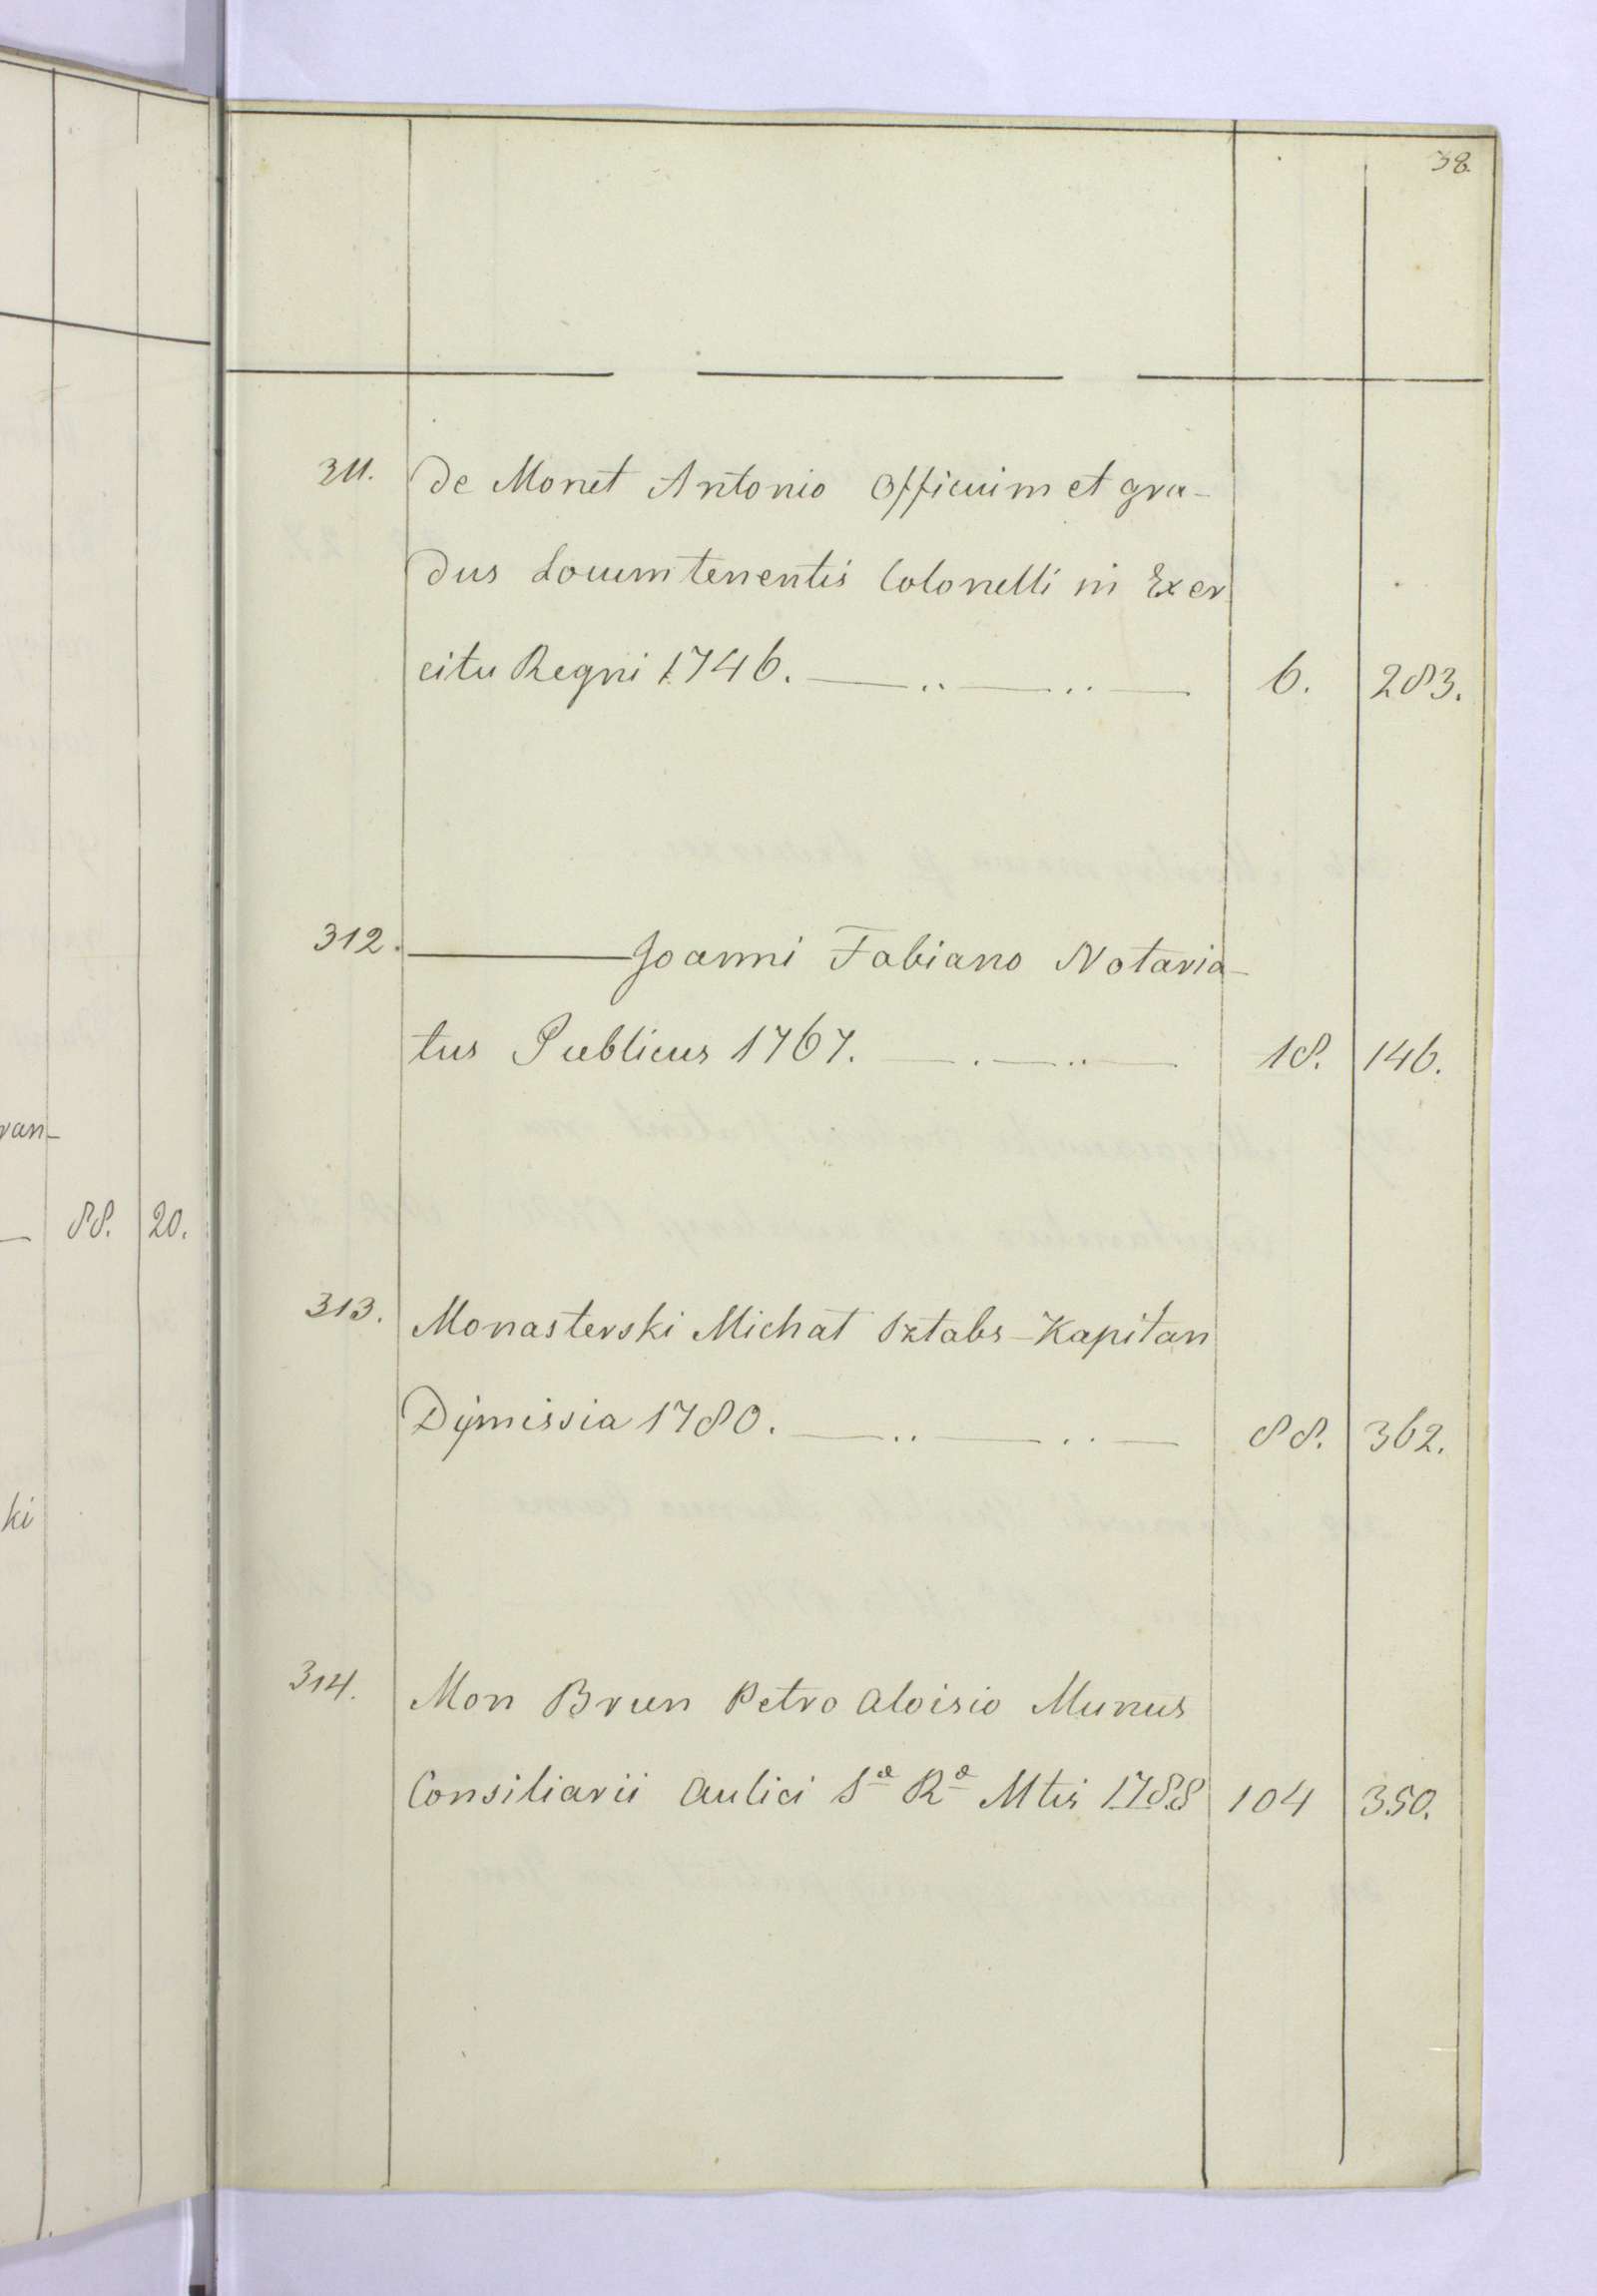 38.
311. De Monet Antonio Officium et gra-
dus Locumtenentis Colonelli in Exer
citu Regni 1746. 6. 283.
312. Joanni Fabiano Notaria-
tus Publicus 1767. 18. 146.
ran-
88. 20.
313. Monasterski Michał Sztabs-Kapitan
Dymissia 1780. 88. 362.
ki
314. Mon Brun Petro Aloisio Munus
Consiliarii Aulici Sæ Ræ Mtis 1788 104 350.